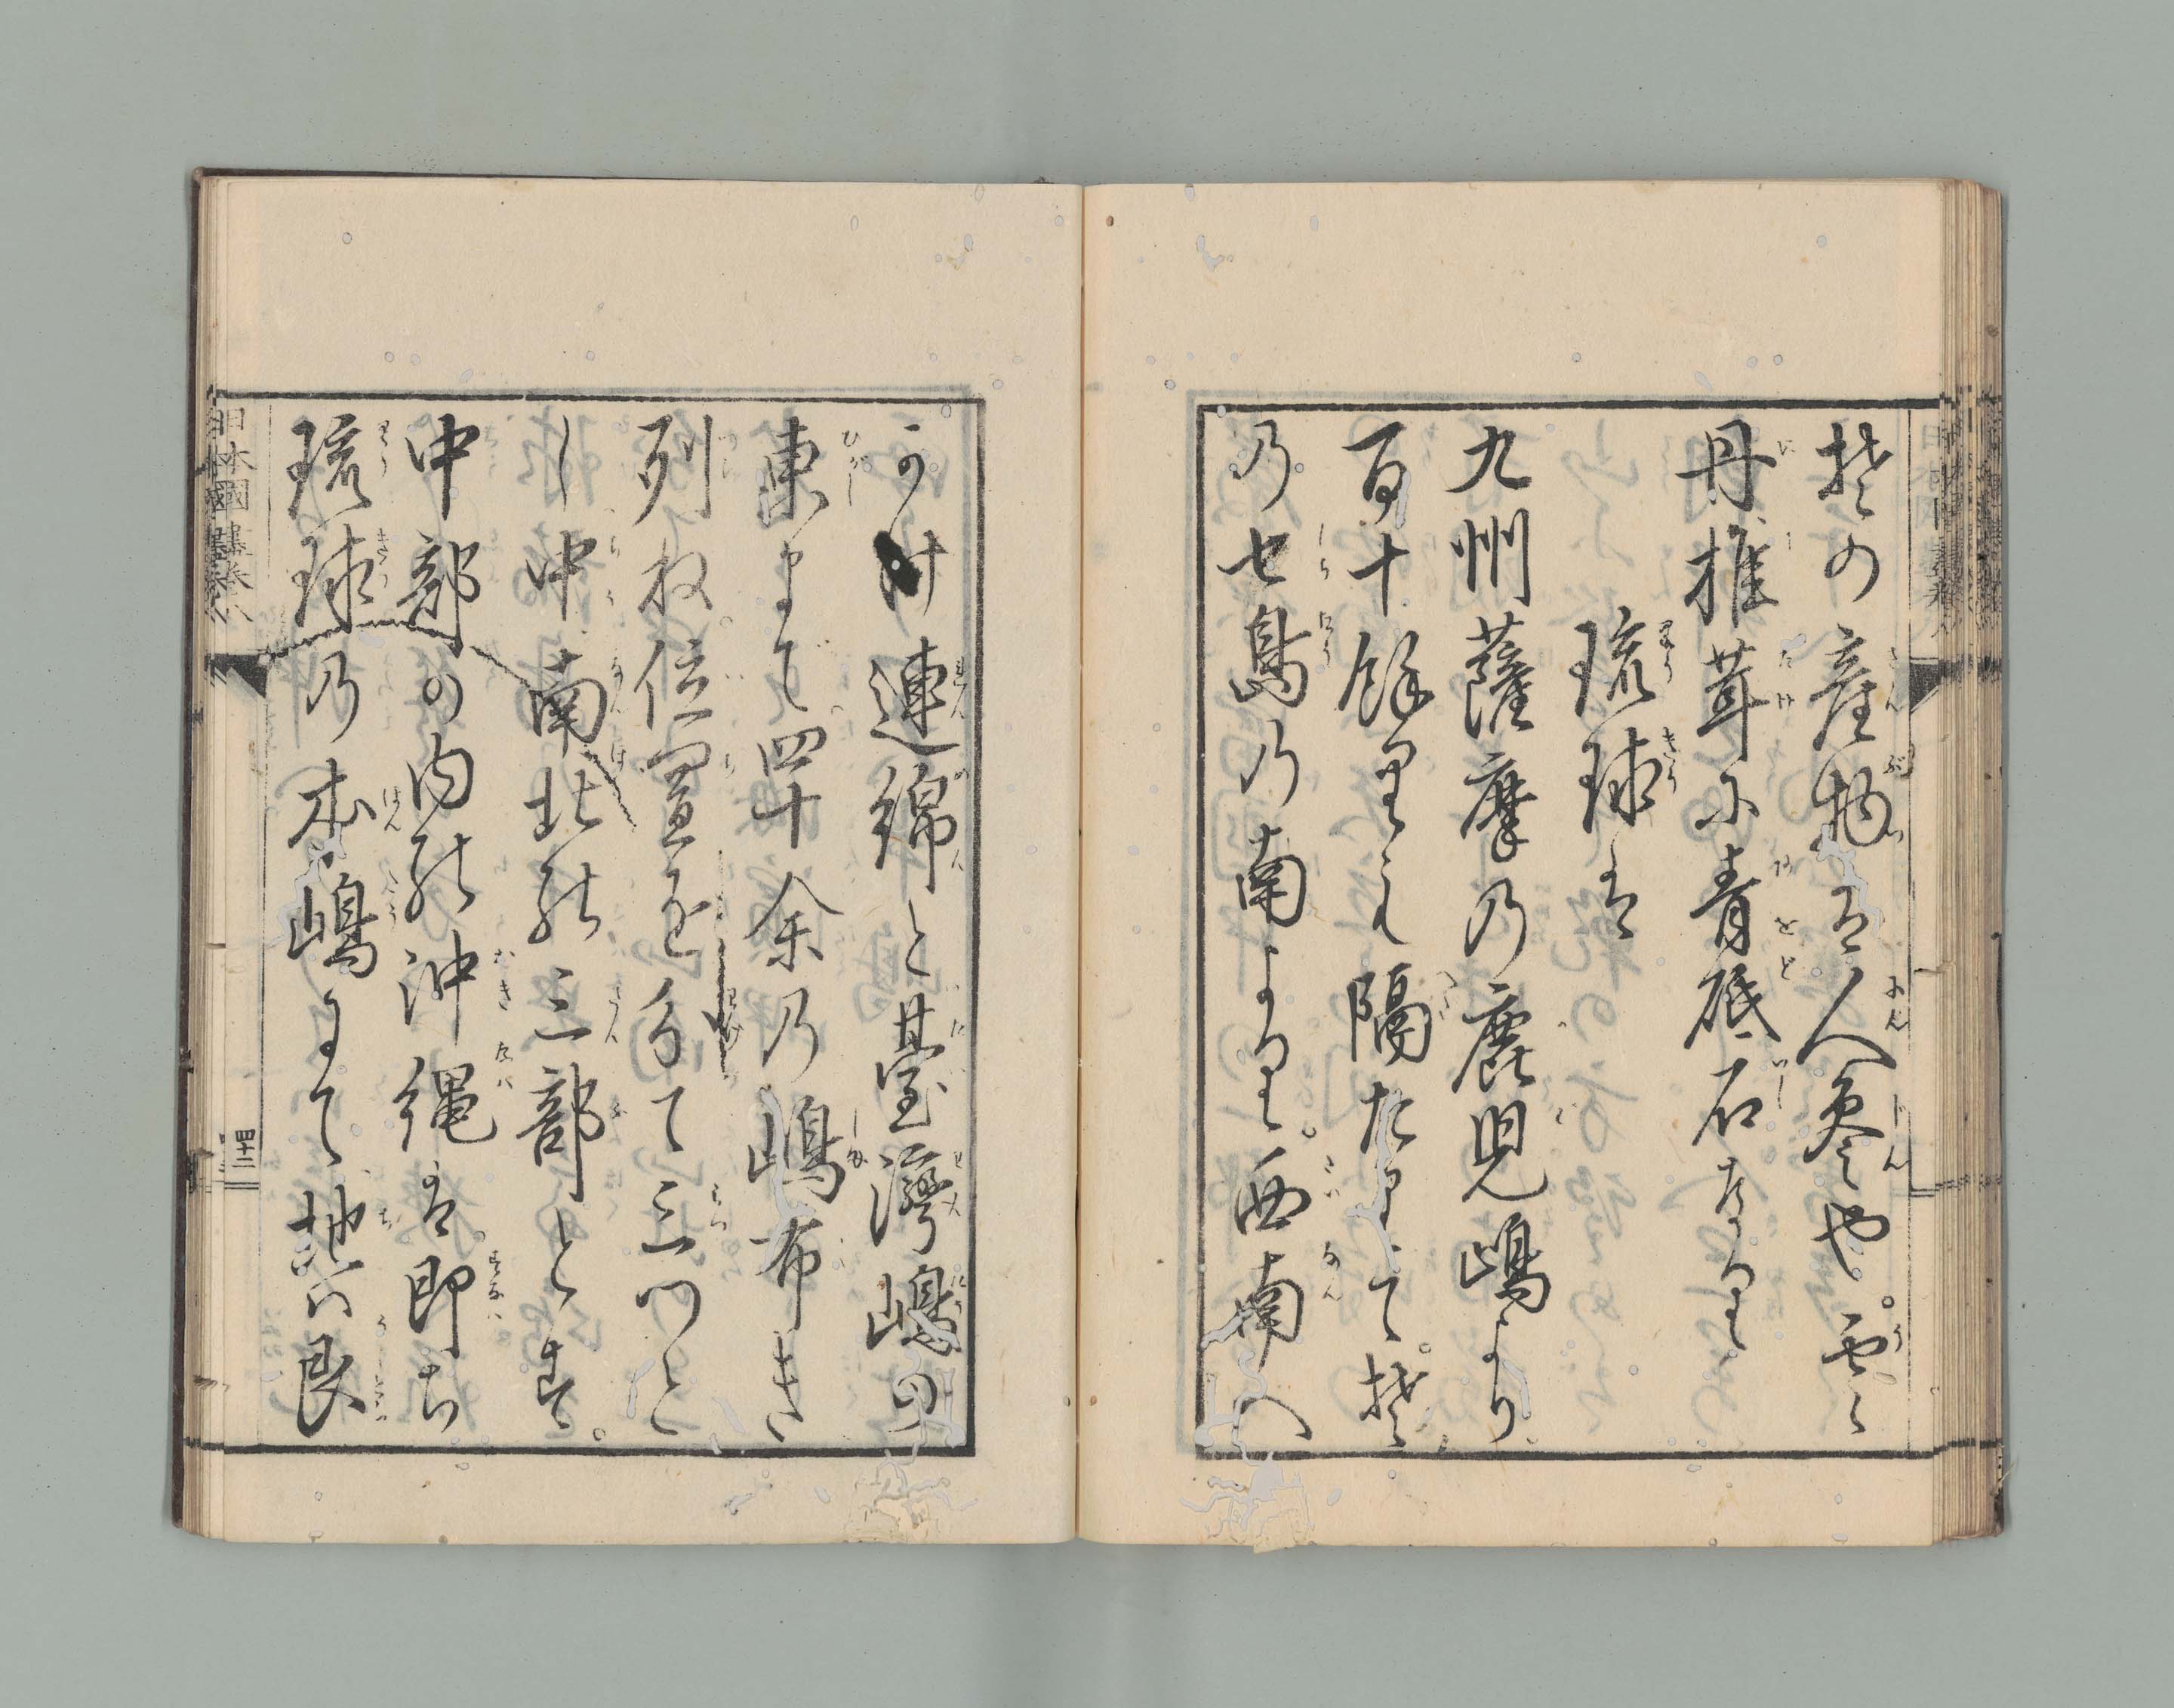 其の産物は人参也。雲
丹椎茸に青砥石なり
琉球は
九州薩摩乃鹿児嶋より
百十餘里も隔たりて。其
乃七島乃南より。西南へ
かけ連綿と臺湾嶋の
東まで四十余乃嶋布き
列ね。位置を分て三つと
し中南北の三部とす。
中部の内の沖縄は即ち
琉球乃本嶋にて地は良
日本國盡巻八
四十二